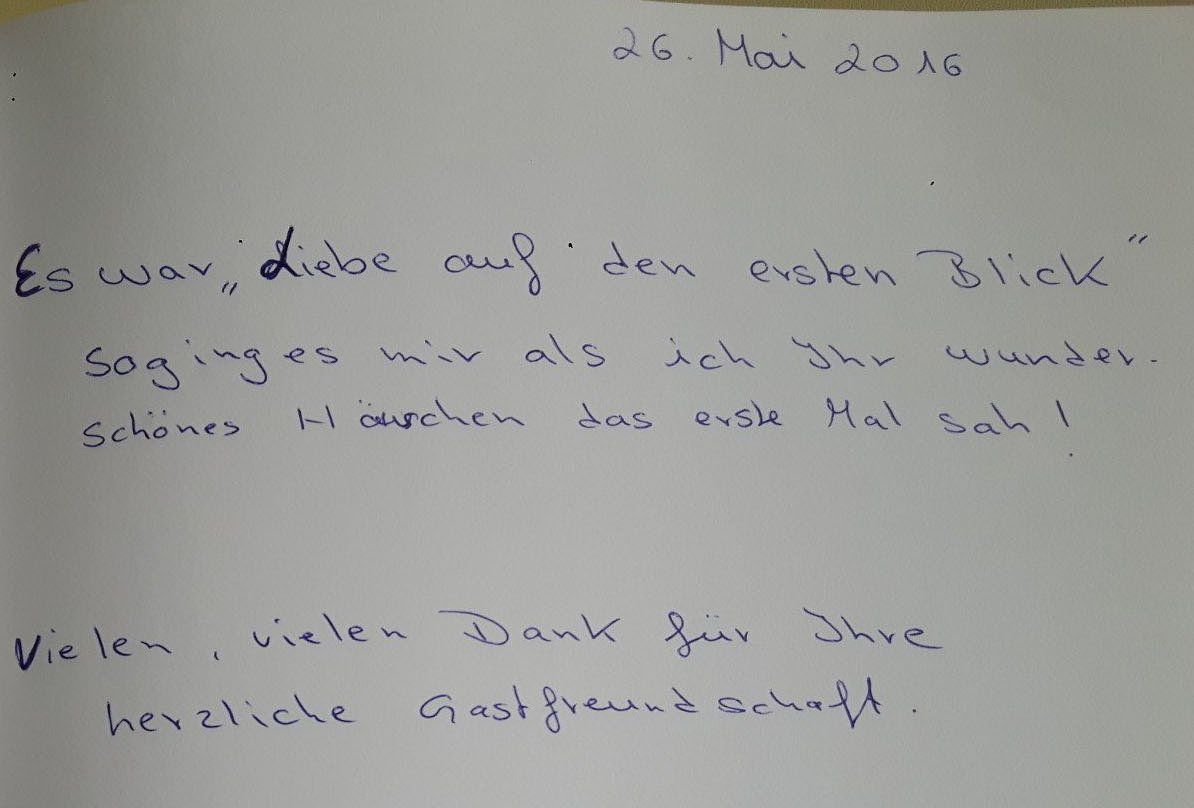 26. Mai 2016
Es war „Liebe auf den ersten Blick"
so ging es mir als ich Ihr wunder-
schönes Häuschen das erste Mal sah!
Vielen, vielen Dank für Ihre
herzliche Gastfreundschaft.